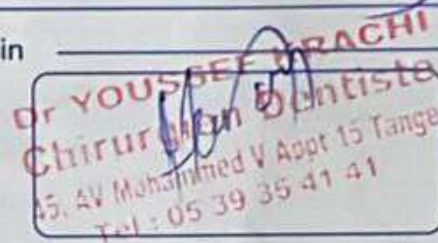 in
Dr YOUSSEF
Chirurgien Dentiste
45, AV Mohammed V Appt 15 Tange
Tel : 05 39 35 41 41